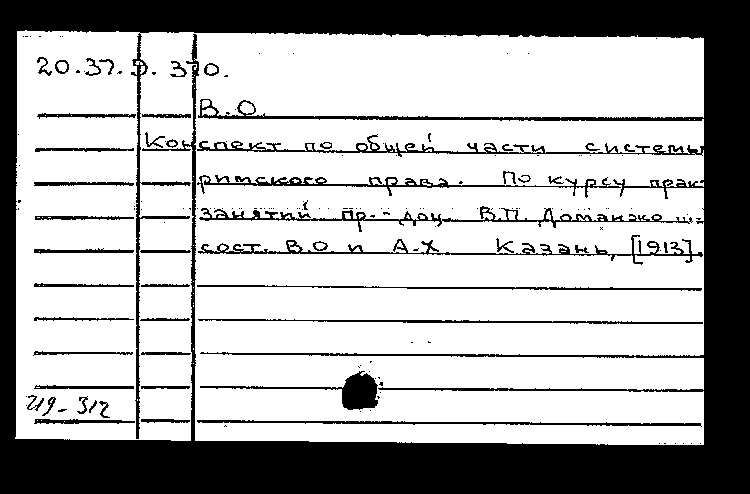 20.37.9. 370.
В.О.
Конспект по общей части системы
римского права. По курсу прак-
занятий пр.-доц. В.П. Доманжо
сост. В.О. и А-Х Казань, [1913].
219-312